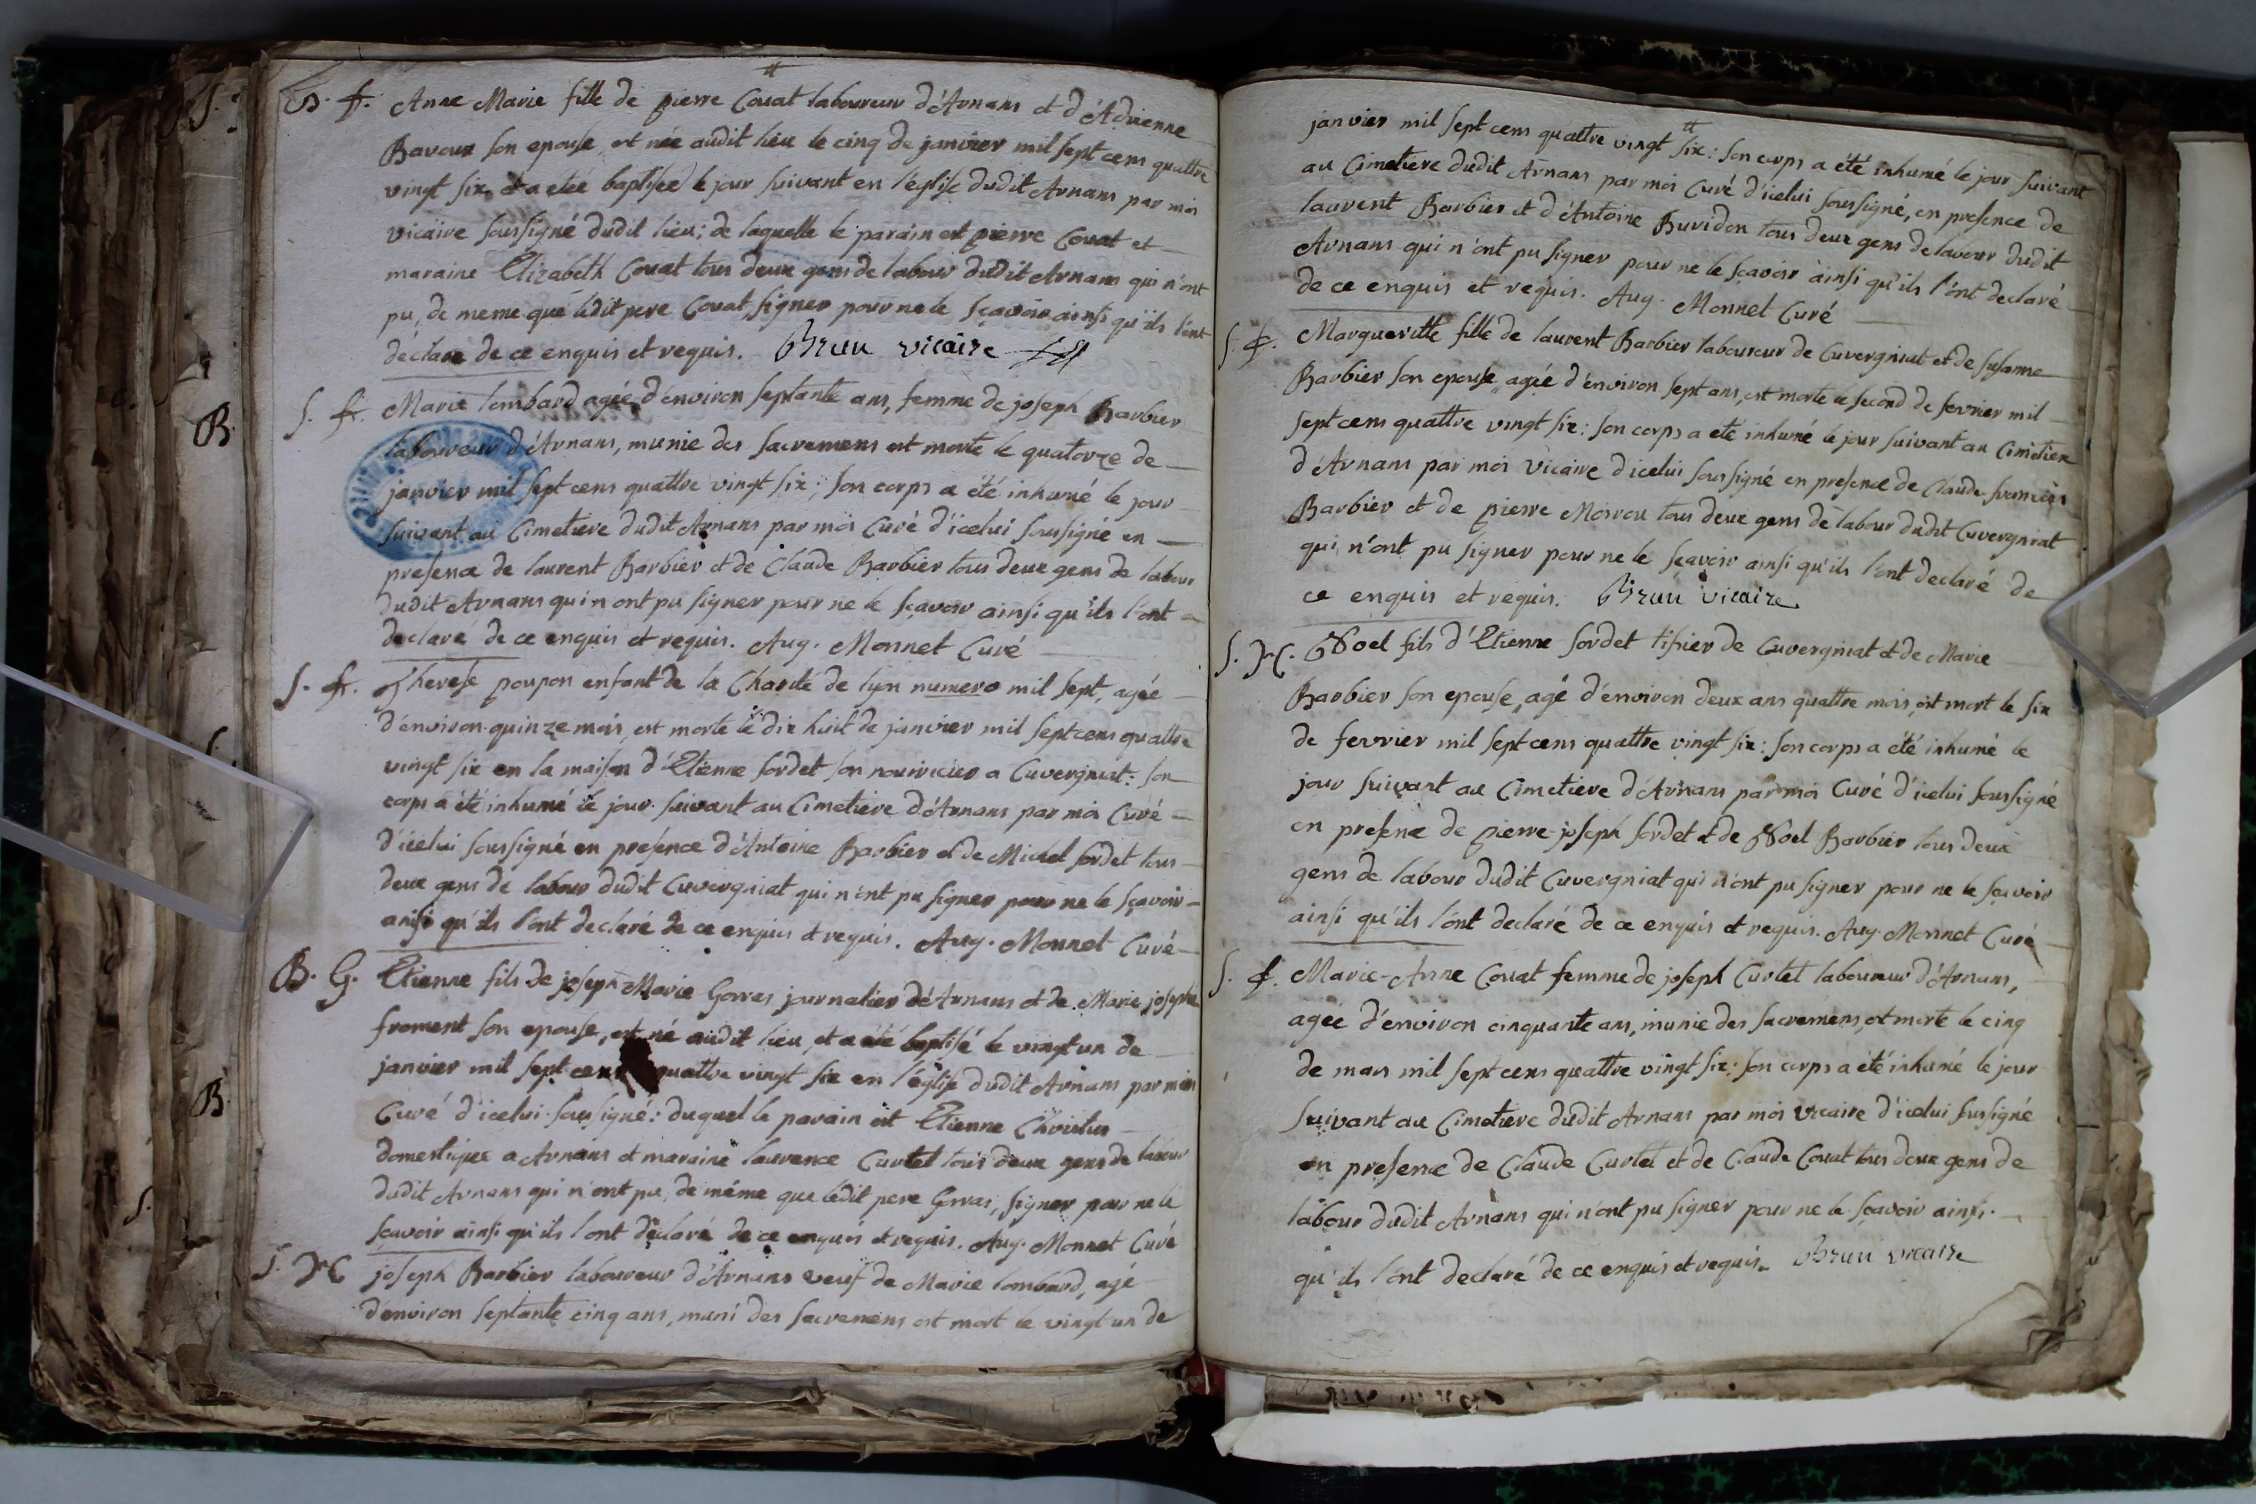 B. f. Anne Marie fille de pierre Couat laboureur d'Arnans et d'Adrienne
Bavoux son epouse, est née audit lieu le cinq de janvier mil sept cens quattre
vingt six et a eté baptisée le jour suivant en l'église dudit Arnans par moi
vicaire soussigné dudit lieu; de laquelle le parain est pierre Couat et
maraine Elizabeth Couat tous deux gens de labour dudit Arnans qui n'ont
pu, de meme que ledit pere Couat, signer pour ne le sçavoir ainsi qu'ils l'ont
declaré de ce enquis et requis. Brun vicaire
S. f. Marie lombard agée d'environ septante ans, femme de joseph Barbier
laboureur d'Arnans, munie des sacremens est morte le quatorze de
janvier mil sept cens quattre vingt six; son corps a été inhumé le jour
suivant au Cimetiere dudit Arnans par moi Curé d'icelui soussigné en
presence de laurent Barbier et de Claude Barbier tous deux gens de labour
dudit Arnans qui n'ont pu signer pour ne le sçavoir ainsi qu'ils l'ont
declaré de ce enquis et requis. Aug. Monnet Curé
S. f. Therese poupon enfant de la Charité de lyon numero mil sept, agée
d'environ quinze mois, est morte le dix huit de janvier mil sept cens quattre
vingt six en la maison d'Etienne sordet son nourricier a Cuvergniat: son
corps a été inhumé le jour suivant au Cimetiere d'Arnans par moi Curé
d'icelui soussigné en présence d'Antoine Barbier et de Michel sordet tous
deux gens de labour dudit Cuvergniat qui n'ont pu signer pour ne le sçavoir
ainsi qu'ils l'ont declaré de ce enquis et requis. Aug. Monnet Curé
B. G. Etienne fils de joseph-Marie Gorras journalier d'Arnans et de Marie josephe
froment son epouse, est né audit lieu, et a été baptisé le vingt un de
janvier mil sept cens quattre vingt six en l'église dudit Arnans par moi
Curé d'icelui soussigné: duquel le parain est Etienne
domestique a Arnans et maraine laurence Curtet tous deux gens de labour
dudit Arnans qui n'ont pu, de même que ledit pere Gorras, signer pour ne le
sçavoir ainsi qu'ils l'ont déclaré de ce enquis et requis. Aug. Monnet Curé
S. joseph Barbier laboureur d'Arnans veuf de Marie lombard, agé
d'environ septante cinq ans, muni des sacremens est mort le vingt un de
janvier mil sept cens quattre vingt six: son corps a été inhumé le jour suivant
au Cimetiere dudit Arnans par moi Curé d'icelui soussigné, en presence de
laurent Barbier et d'Antoine Buvidon tous deux gens de labour dudit
Arnans qui n'ont pu signer pour ne le sçavoir ainsi qu'ils l'ont declaré
de ce enquis et requis. Aug. Monnet Curé
S. f. Margueritte fille de laurent Barbier laboureur de Cuvergniat et de Susanne
Barbier son epouse, agée d'environ sept ans, est morte le second de fevrier mil
sept cens quattre vingt six: son corps a eté inhumé le jour suivant au Cimetiere
d'Arnans par moi vicaire d'icelui soussigné en presence de Claude francois
Barbier et de pierre Morrou tous deux gens de labour dudit Cuvergniat
qui n'ont pu signer pour ne le sçavoir ainsi qu'ils l'ont declaré de
ce enquis et requis. Brun vicaire
S. Noel fils d'Etienne sordet tisier de Cuvergniat et de Marie
Barbier son epouse, agé d'environ deux ans quattre mois, est mort le six
de fevrier mil sept cens quattre vingt six: son corps a été inhumé le
jour suivant au Cimetiere d'Arnans par moi Curé d'icelui soussigné
en presence de pierre-joseph sordet et de Noel Barbier tous deux
gens de labour dudit Cuvergniat qui n'ont pu signer pour ne le sçavoir
ainsi qu'ils l'ont declaré de ce enquis et requis. Aug. Monnet Curé
S. f. Marie-Anne Couat femme de joseph Curtet laboureur d'Arnans,
agée d'environ cinquante ans, munie des sacremens, est morte le cinq
de mars mil sept cens quattre vingt six: son corps a été inhumé le jour
suivant au Cimetiere dudit Arnans par moi vicaire d'icelui soussigné
en presence de Claude Curtet et de Claude Couat tous deux gens de
labour dudit Arnans qui n'ont pu signer pour ne le sçavoir ainsi
qu'ils l'ont declaré de ce enquis et requis. Brun vicaire